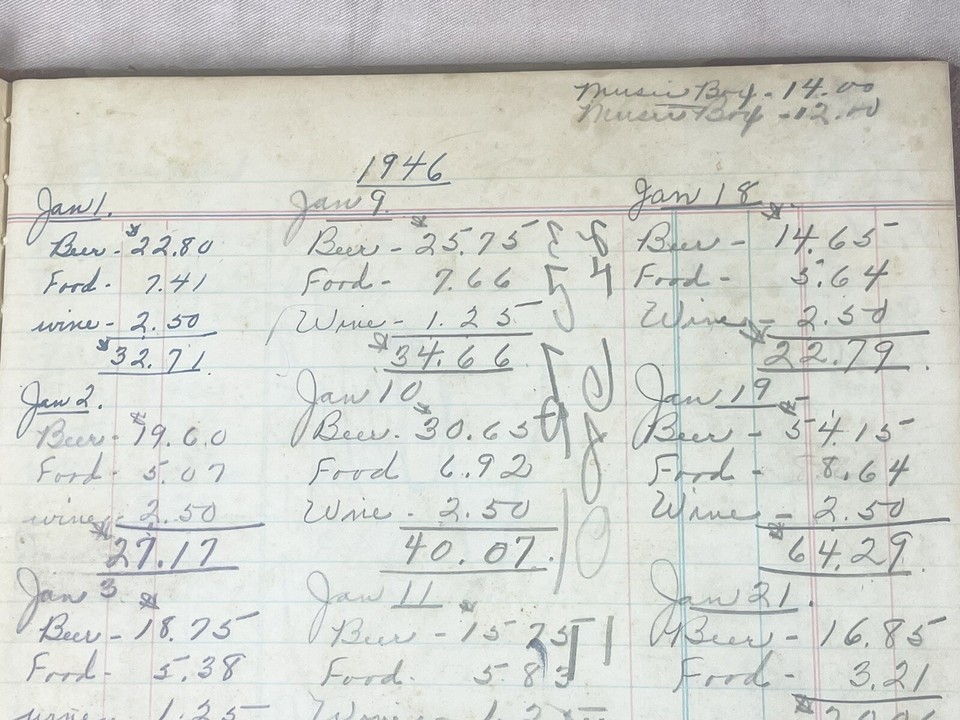 Music Box - 14.00
Music Box - 12.00
1946
Jan 1.
Beer - $22.80
Food - 7.41
wine - 2.50
$32.71
Jan 2.
Beer - $19.60
Food - 5.07
wine - 2.50
$27.17
Jan 3
Beer - $18.75
Food - 5.38
wine - 1.25
Jan 9.
Beer - $25.75
Food - 7.66
Wine - 1.25
$34.66
Jan 10
Beer - $30.65
Food 6.92
Wine - 2.50
40.07.
Jan 11
Beer - $15.75
Food - 5.83
Wine - 1.25
Jan 18
Beer - $14.65
Food - 5.64
Wine - 2.50
$22.79.
Jan 19
Beer - $54.15
Food - 8.64
Wine - 2.50
$64.29.
Jan 21.
Beer - 16.85
Food - 3.21